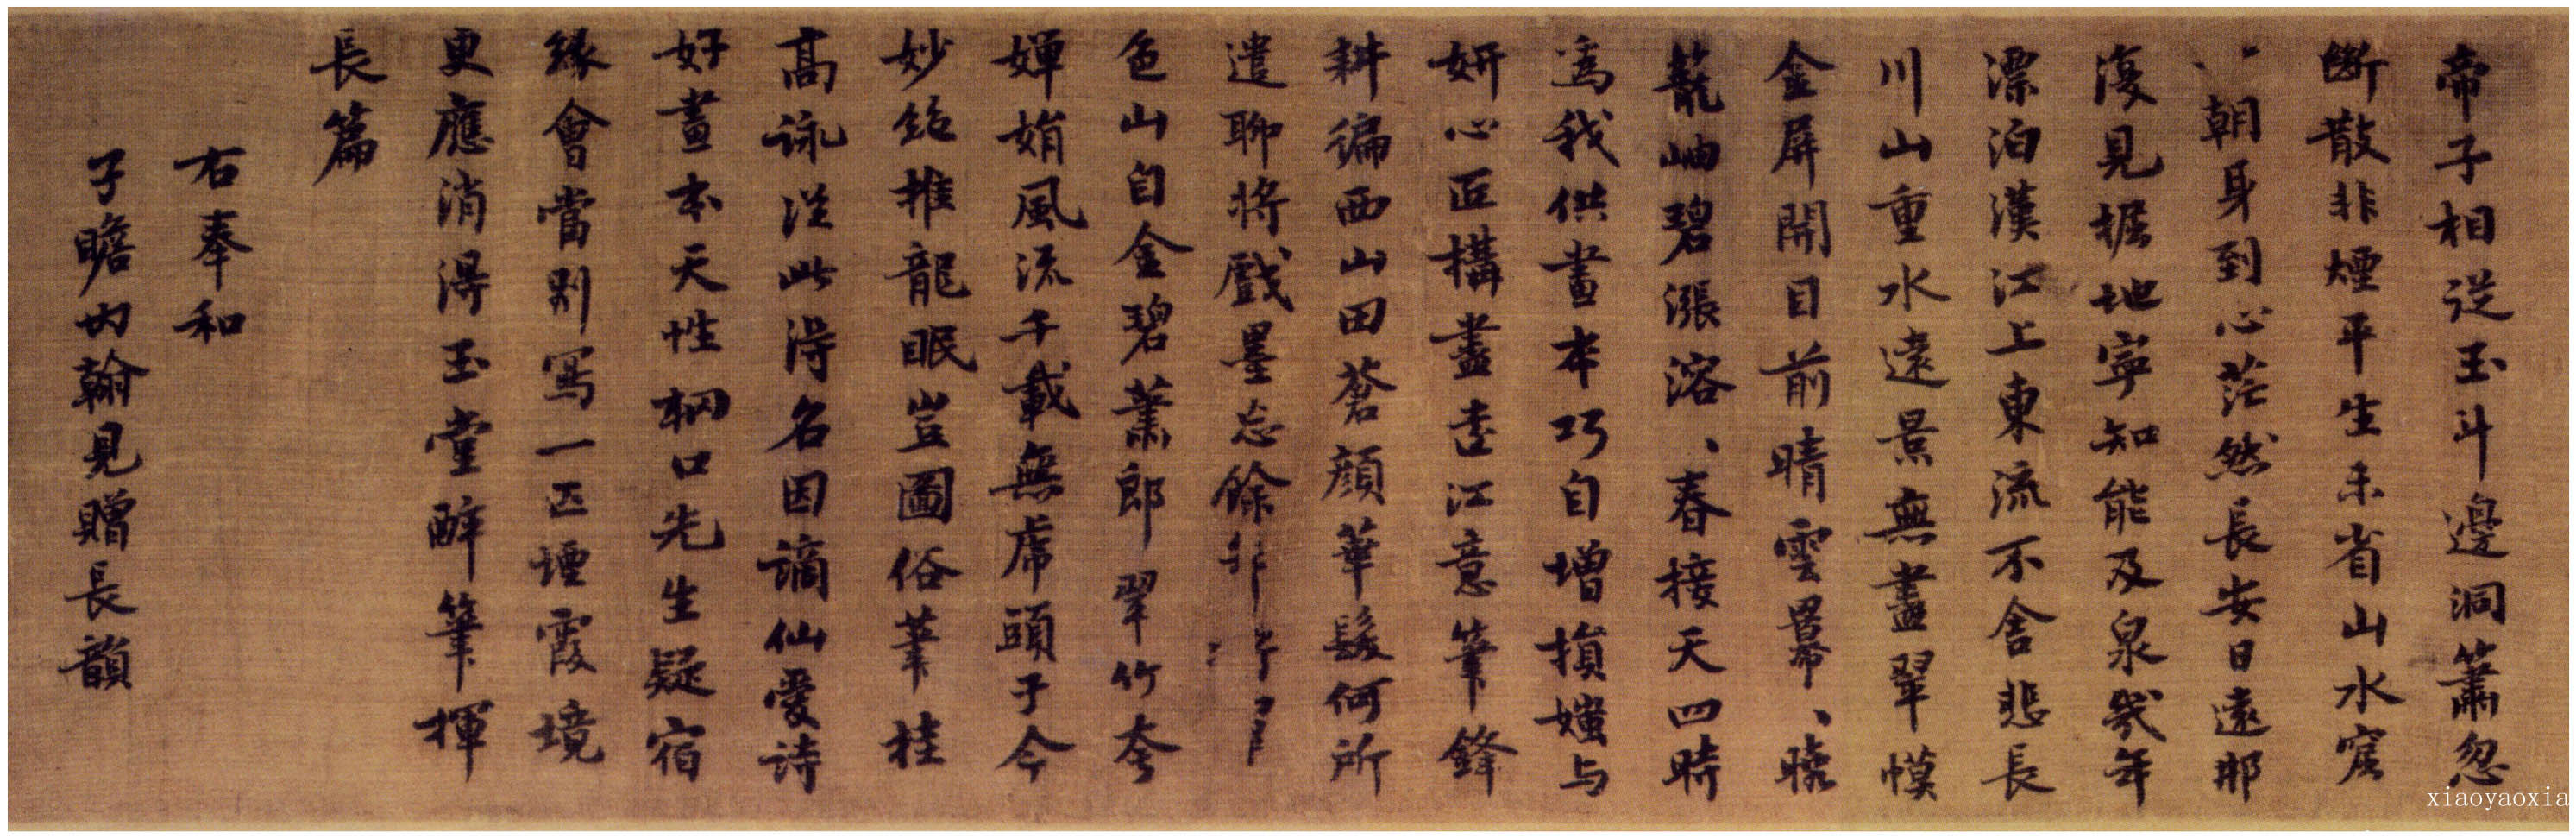 帝子相從玉斗邊洞簫忽
斷散非煙平生未省山水窟
朝身到心茫然長安日遠那
復見掘地寧知能及泉幾年
漂泊漢江上東流不舍悲長
川山重水遠景無盡翠幙
金屏開目前晴雲羃、曉
蘢岫碧漲溶、春接天四時
為我供畫本巧自增損媸与
妍心匠構盡壺江意筆鋒
耕徧西山田蒼顏華髮何所
遣聊將戲墨忘餘
色山自金碧蕭郎翠竹夸
嬋娟風流千載無虎頭于今
妙絶推龍眠豈圖俗筆挂
高詠從此得名因謫仙愛詩
好畫本天性輞口先生疑宿
緣會當别寫一匹煙霞境
更應消得玉堂醉筆揮
長篇
右奉和
子瞻内翰見贈長韻
xiaoyaoxia